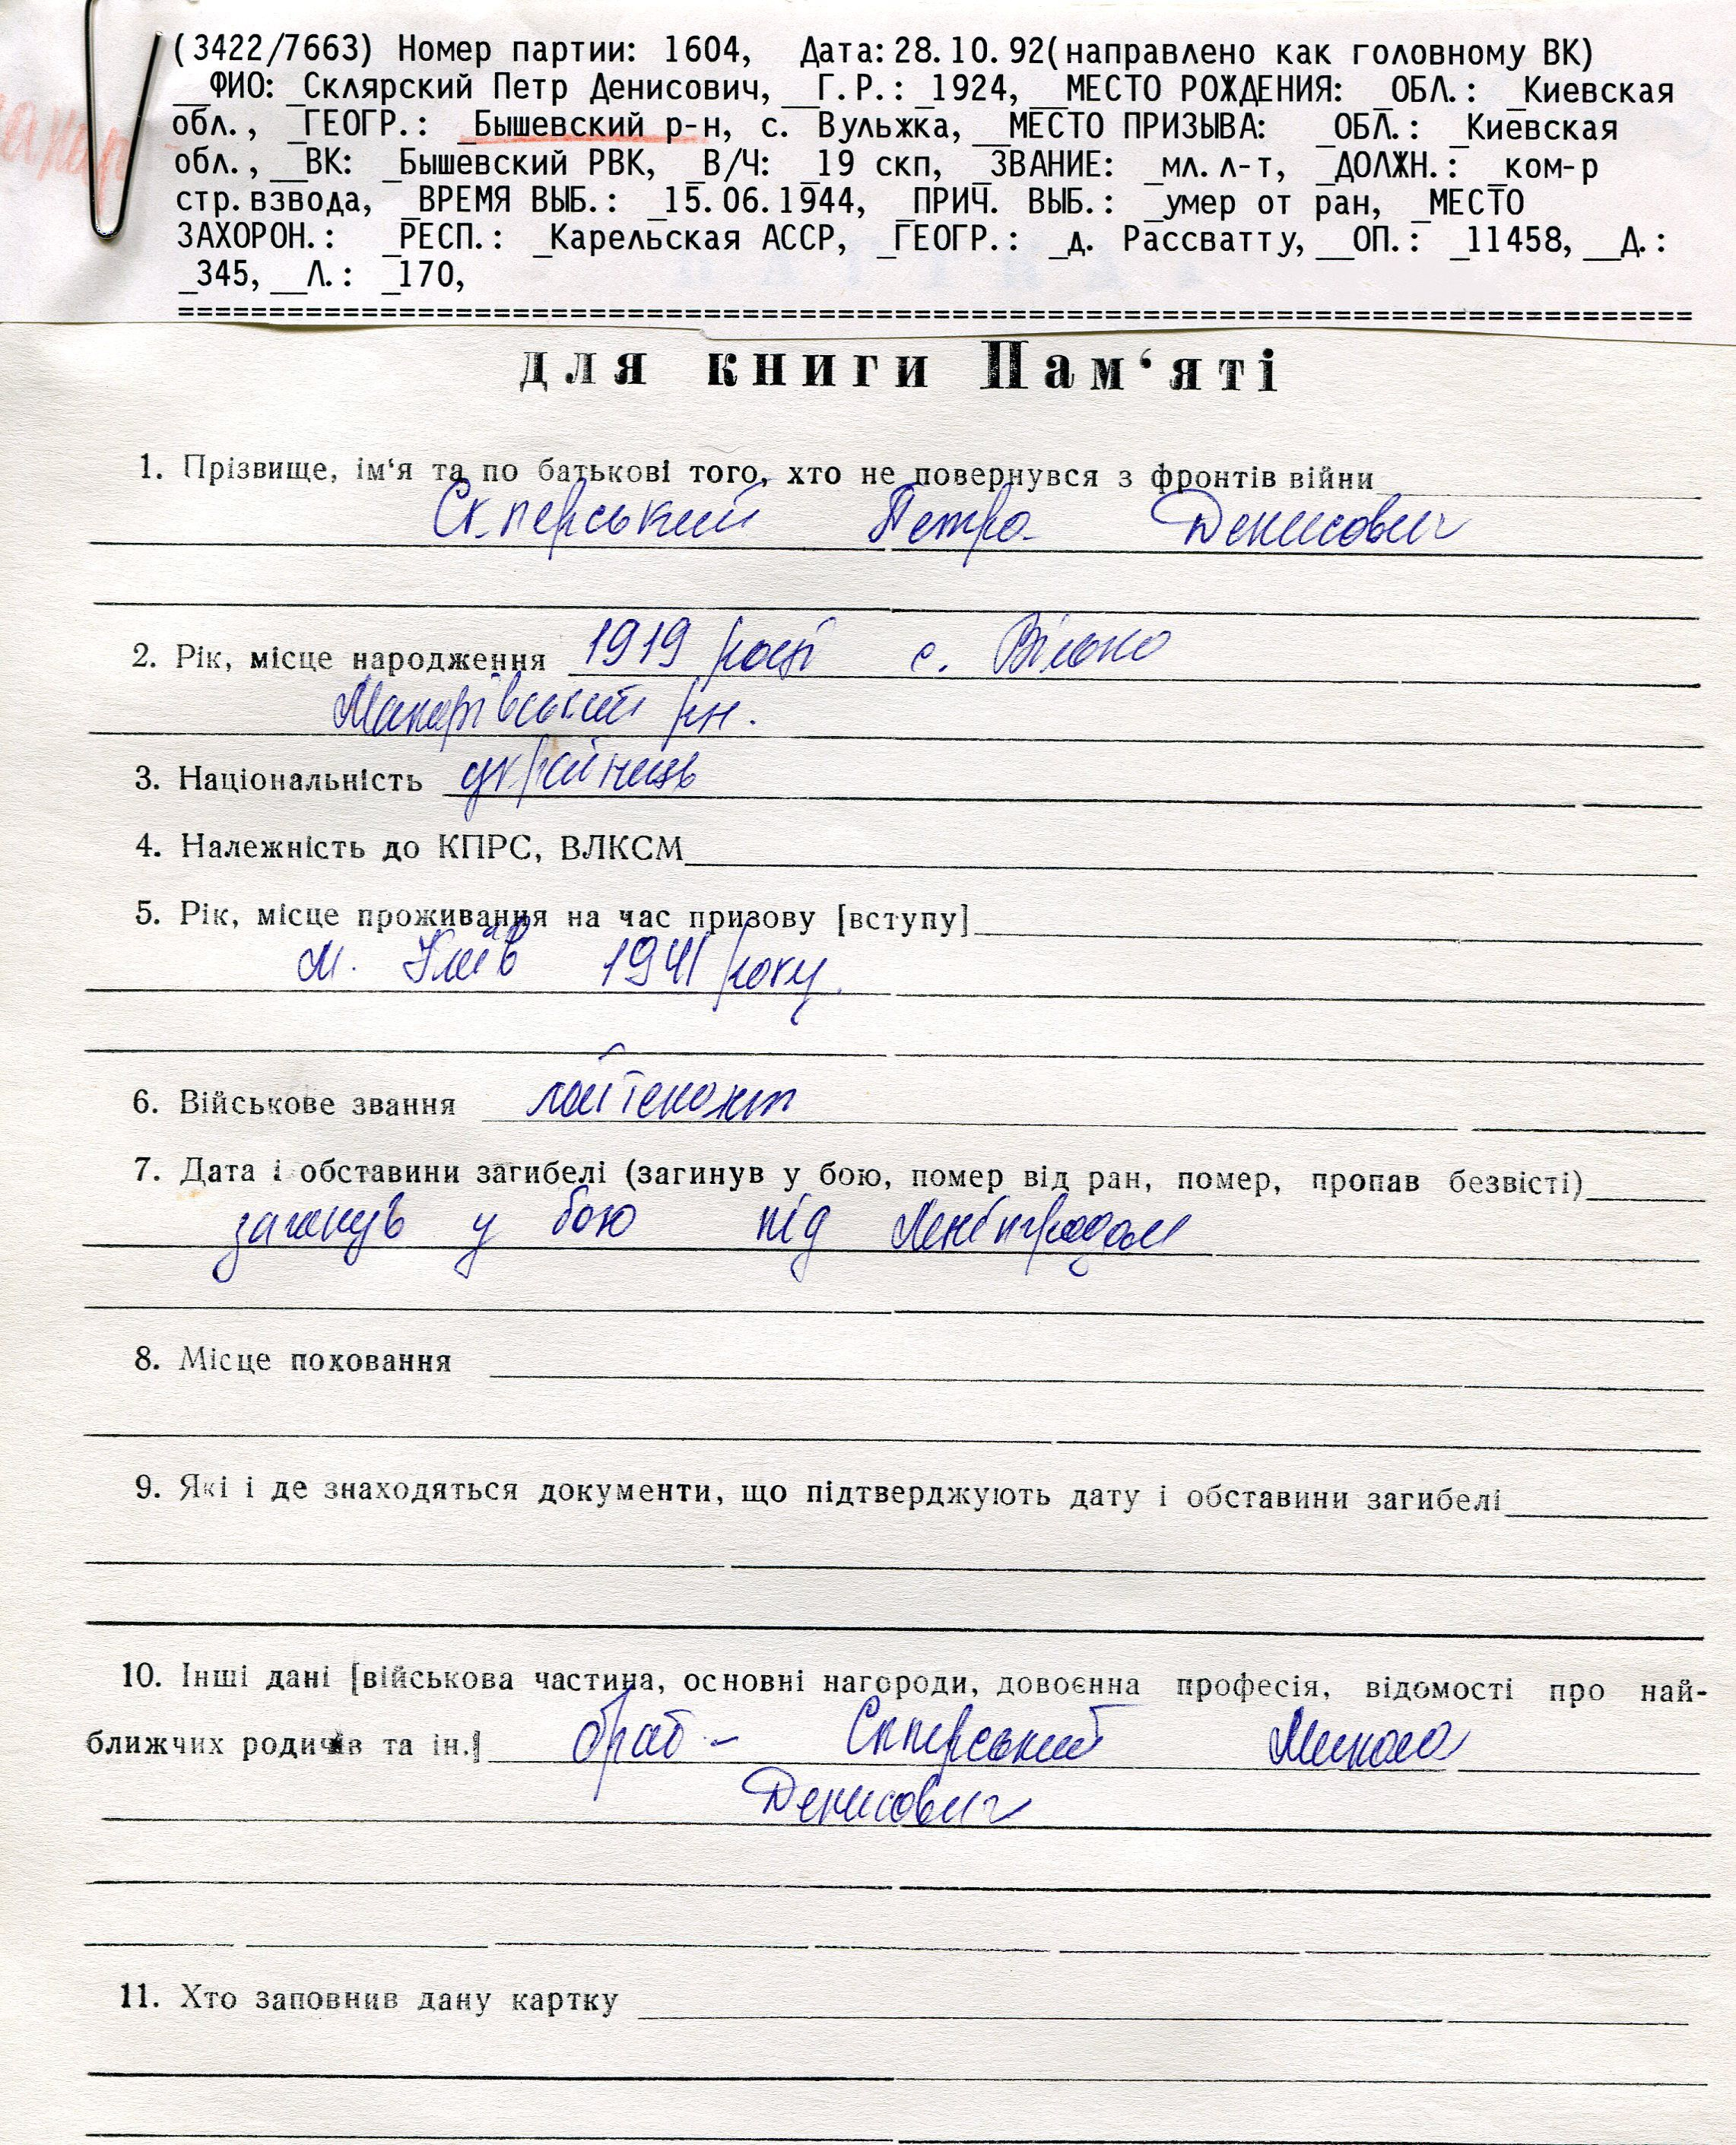 (3422/7663) Номер партии: 1604, Дата: 28.10.92(направлено как головному ВК)
__ФИО: _Склярский Петр Денисович, __Г.Р.: _1924, __МЕСТО РОЖДЕНИЯ: _ОБЛ.: _Киевская
обл., _ГЕОГР.: _Бышевский р-н, с. Вульжка, __МЕСТО ПРИЗЫВА: _ОБЛ.: _Киевская
обл., __ВК: _Бышевский РВК, _В/Ч: _19 скп, _ЗВАНИЕ: _мл.л-т, _ДОЛЖН.: _ком-р
стр.взвода, _ВРЕМЯ ВЫБ.: _15.06.1944, _ПРИЧ. ВЫБ.: _умер от ран, _МЕСТО
ЗАХОРОН.: _РЕСП.: _Карельская АССР, _ГЕОГР.: _д. Рассватту, __ОП.: _11458, __Д.:
_345, __Л.: _170,
для книги Пам‘яті
1. Прізвище, ім‘я та по батькові того, хто не повернувся з фронтів війни
Петро Денисович
2. Рік, місце народження 1919 році с.
Макарівський рн.
3. Національність українець
4. Належність до КПРС, ВЛКСМ
5. Рік, місце проживання на час призову [вступу]
м. Київ 1941 року.
6. Військове звання лейтенант
7. Дата і обставини загибелі (загинув у бою, помер від ран, помер, пропав безвісті)
загинув у бою під Ленінградом
8. Місце поховання
9. Які і де знаходяться документи, що підтверджують дату і обставини загибелі
10. Інші дані [військова частина, основні нагороди, довоєнна професія, відомості про най-
ближчих родичів та ін.] брат - Микола
Денисович
11. Хто заповнив дану картку